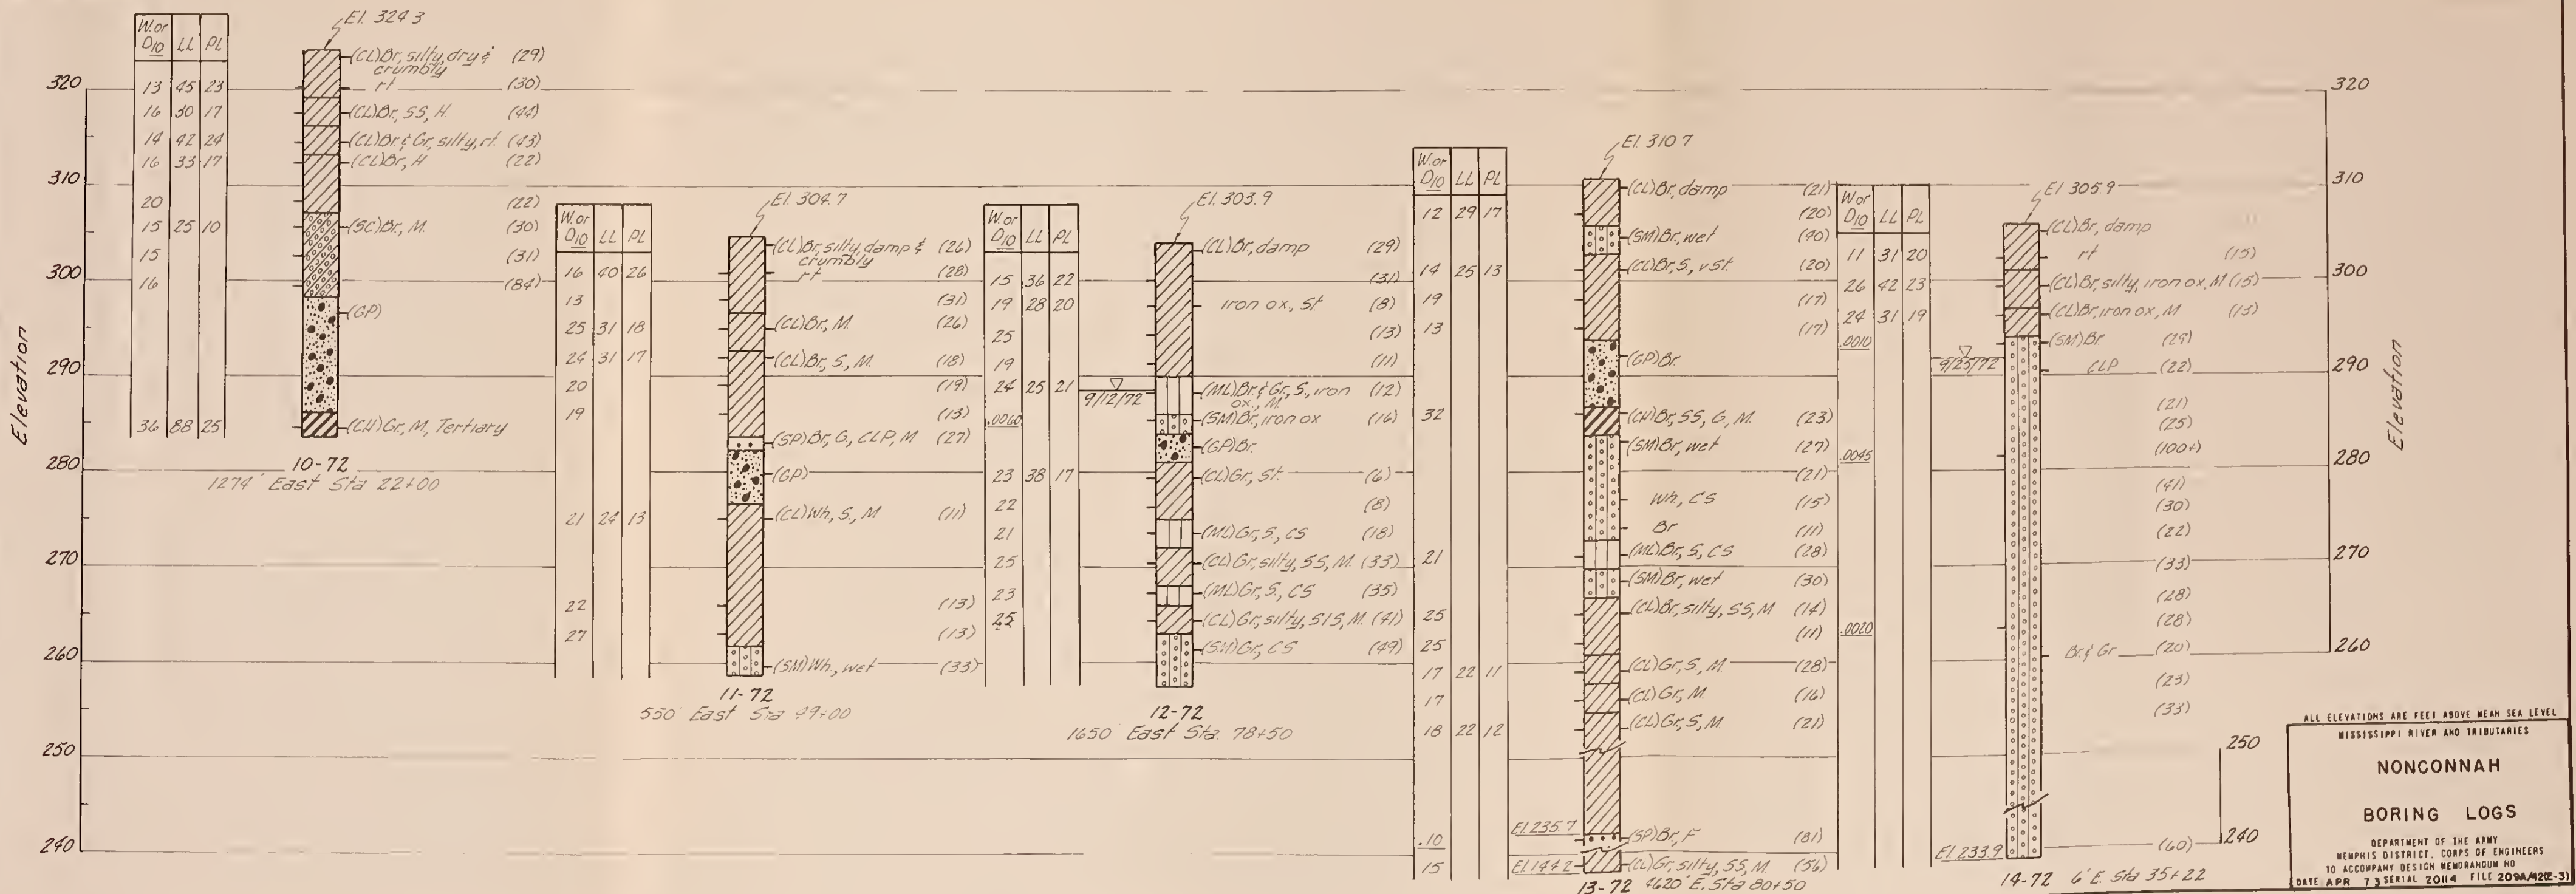 W. or D10 LL PL
El. 324.3
13 45 23
16 30 17
14 42 24
16 33 17
20
15 25 10
15
16
36 88 25
(CL)Br, silty, dry & (29)
crumbly
rt (30)
(CL)Br, SS, H (44)
(CL)Br & Gr, silty, rt. (43)
(CL)Br, H (22)
(22)
(SC)Br, M. (30)
(31)
(84)
(GP)
(CH)Gr, M, Tertiary
10-72
1274' East Sta 22+00
Elevation
320
310
300
290
280
270
260
250
240
W. or D10 LL PL
El. 304.7
16 40 26
13
25 31 18
24 31 17
20
19
21 24 13
22
27
(CL)Br, silty, damp & (26)
crumbly
rt (28)
(31)
(CL)Br, M. (26)
(CL)Br, S, M. (18)
(19)
(13)
(SP)Br, G, CLP, M (27)
(GP)
(CL)Wh, S, M (11)
(13)
(13)
(SM)Wh, wet (33)
11-72
550' East Sta 49+00
W. or D10 LL PL
El. 303.9
15 36 22
19 28 20
25
19
24 25 21
.0060
23 38 17
22
21
25
23
25
9/12/72
(CL)Br, damp (29)
(31)
iron ox, St (8)
(13)
(11)
(ML)Br & Gr, S, iron (12)
ox., M
(SM)Br, iron ox (16)
(GP)Br.
(CL)Gr, St. (6)
(8)
(ML)Gr, S, CS (18)
(CL)Gr, silty, SS, M. (33)
(ML)Gr, S, CS (35)
(CL)Gr, silty, SIS, M. (41)
(SM)Gr, CS (49)
12-72
1650' East Sta. 78+50
W. or D10 LL PL
El. 310.7
12 29 17
14 25 13
19
13
32
21
25
25
17 22 11
17
18 22 12
.10
15
(CL)Br, damp (21)
(20)
(SM)Br, wet (40)
(CL)Br, S, vSt. (20)
(17)
(17)
(GP)Br.
(CH)Br, SS, G, M. (23)
(SM)Br, wet (27)
(21)
Wh, CS (15)
Br (11)
(ML)Br, S, CS (28)
(SM)Br, wet (30)
(CL)Br, silty, SS, M (14)
(11)
(CL)Gr, S, M. (28)
(CL)Gr, M. (16)
(CL)Gr, S, M. (21)
El. 235.7
(SP)Br, F (81)
El. 144.2
(CL)Gr, silty, SS, M. (56)
13-72 4620' E. Sta 80+50
W or D10 LL PL
El 305.9
11 31 20
26 42 23
24 31 19
.0010
.0045
.0020
9/25/72
(CL)Br, damp
rt (15)
(CL)Br, silty, iron ox, M (15)
(CL)Br, iron ox, M (13)
(SM)Br (29)
CLP (22)
(21)
(25)
(100+)
(41)
(30)
(22)
(33)
(28)
(28)
Br & Gr (20)
(23)
(33)
(60)
El. 233.9
14-72 6' E. Sta 35+22
320
310
300
290
280
270
260
250
240
Elevation
ALL ELEVATIONS ARE FEET ABOVE MEAN SEA LEVEL
MISSISSIPPI RIVER AND TRIBUTARIES
NONCONNAH
BORING LOGS
DEPARTMENT OF THE ARMY
MEMPHIS DISTRICT, CORPS OF ENGINEERS
TO ACCOMPANY DESIGN MEMORANDUM NO
DATE APR 73 SERIAL 20114 FILE 209A/42(E-3)